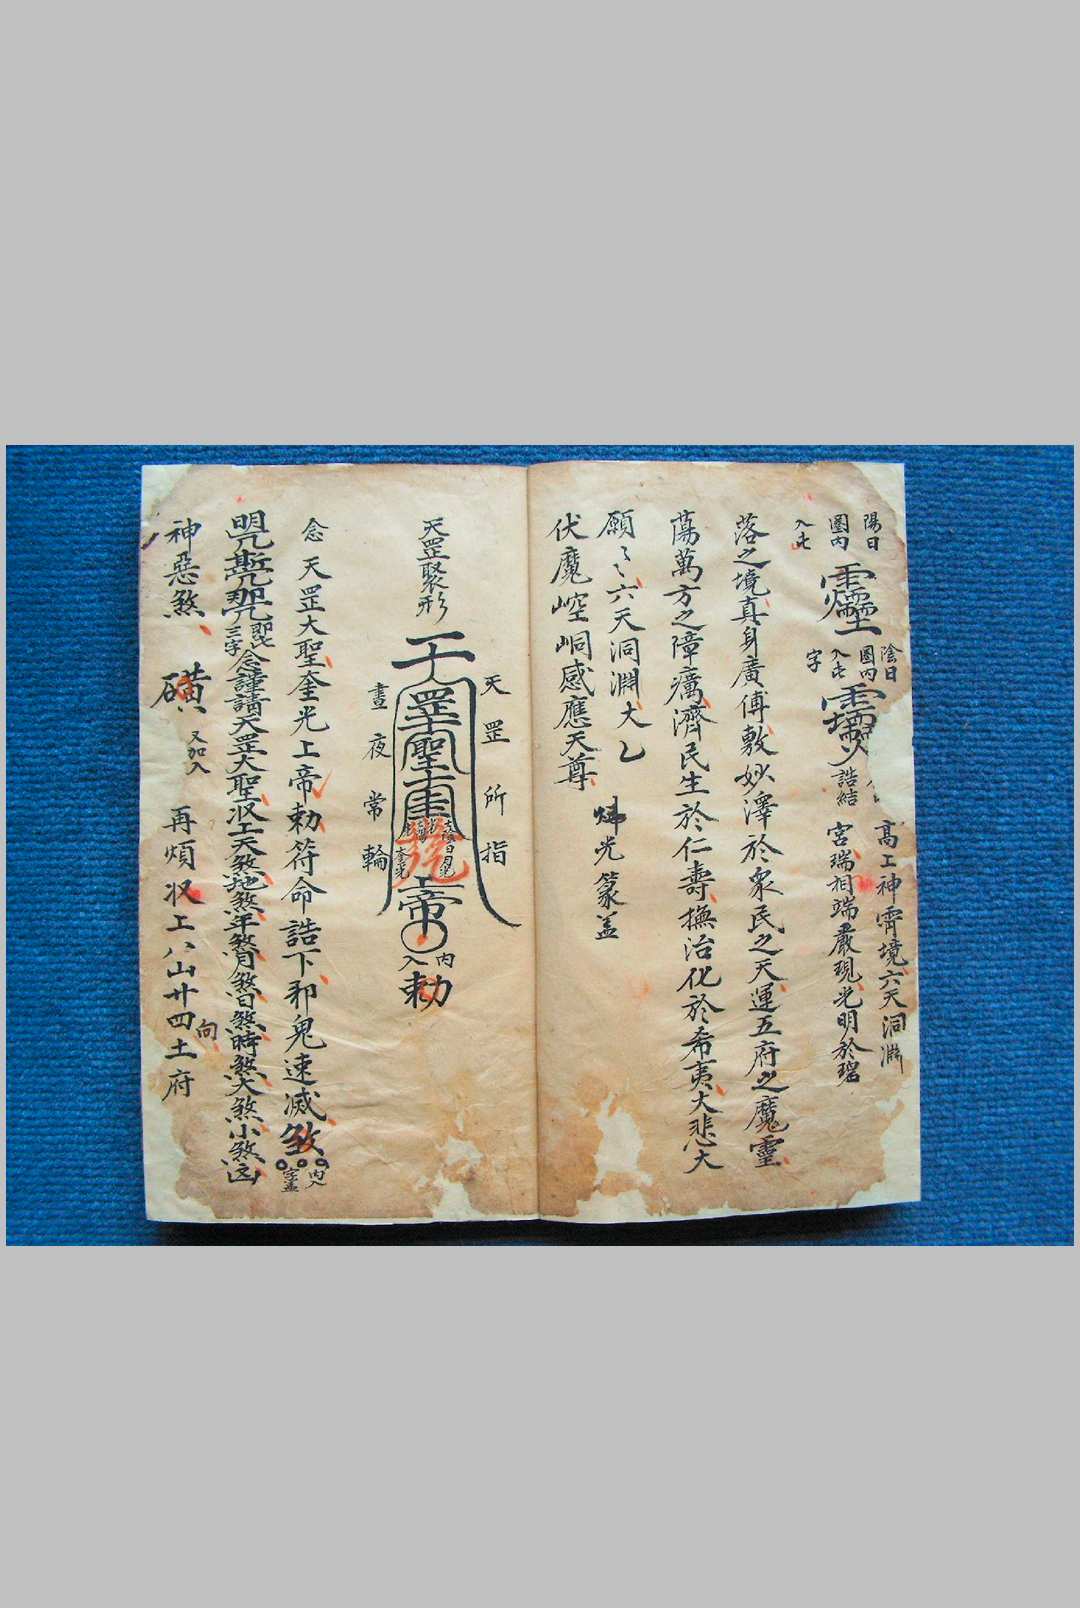 陽日
圈内
入此
陰日
圈内
入此
字
誥結
高上神霄境六天洞淵
宮瑞相端嚴現光明於碧
落之境真身廣傳敷妙澤於眾民之天運五府之魔靈
蕩萬方之障癘濟民生於仁壽撫治化於希夷大悲大
願〻〻六天洞淵大乙
伏魔崆峒感應天尊
光篆蓋
天罡所指
天罡聖
上帝
内
入
勅
晝夜常輪
天罡聚形
念天罡大聖奎光上帝勅符命誥下邪鬼速滅煞
内入
字蓋
即此
三字
念謹請天罡大聖收上天煞地煞年煞月煞日煞時煞大煞小煞凶
神惡煞
又加入
再煩収上八山廿四土府
向